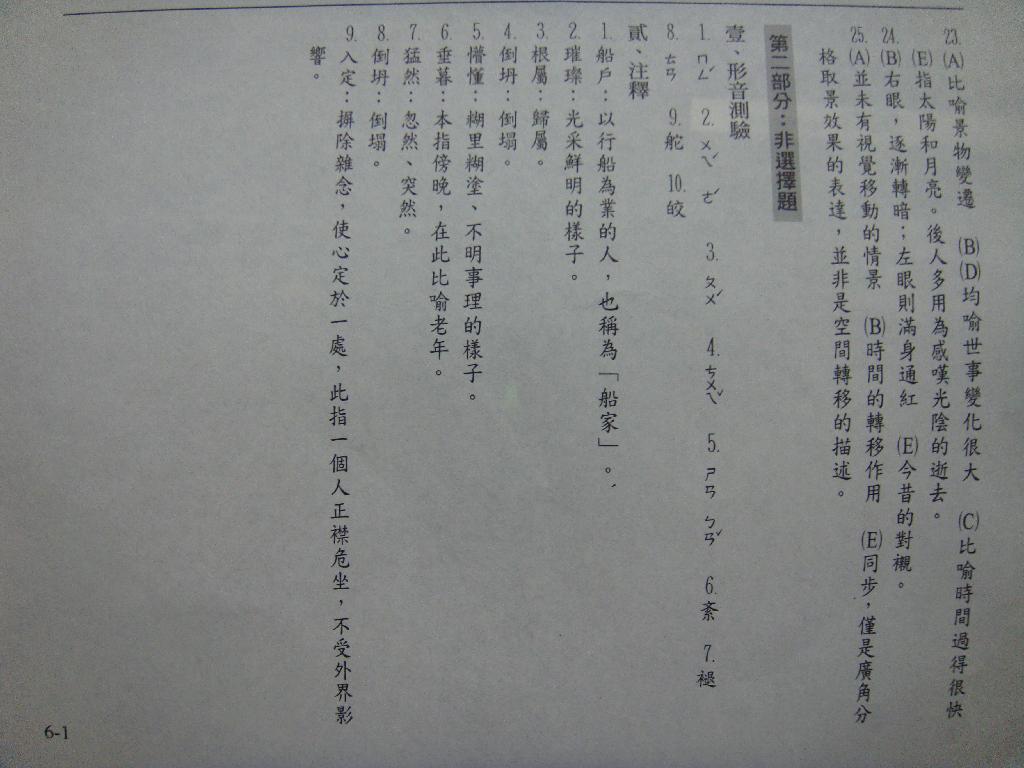 23. (A)比喻景物變遷　(B)(D)均喻世事變化很大　(C)比喻時間過得很快
(E)指太陽和月亮。後人多用為感嘆光陰的逝去。
24. (B)右眼，逐漸轉暗；左眼則滿身通紅　(E)今昔的對襯。
25. (A)並未有視覺移動的情景　(B)時間的轉移作用　(E)同步，僅是廣角分
格取景效果的表達，並非是空間轉移的描述。
第二部分：非選擇題
壹、形音測驗
1. ㄇㄥˊ　2. ㄨㄟˊ ㄜˊ　3. ㄆㄨˊ　4. ㄘㄨㄟˇ　5. ㄕㄢ ㄅㄢˇ　6. 紊　7. 褪
8. ㄊㄢ　9. 舵　10. 皎
貳、注釋
1. 船戶：以行船為業的人，也稱為「船家」。
2. 璀璨：光采鮮明的樣子。
3. 根屬：歸屬。
4. 倒坍：倒塌。
5. 懵懂：糊里糊塗、不明事理的樣子。
6. 垂暮：本指傍晚，在此比喻老年。
7. 猛然：忽然、突然。
8. 倒坍：倒塌。
9. 入定：摒除雜念，使心定於一處，此指一個人正襟危坐，不受外界影
響。
6-1